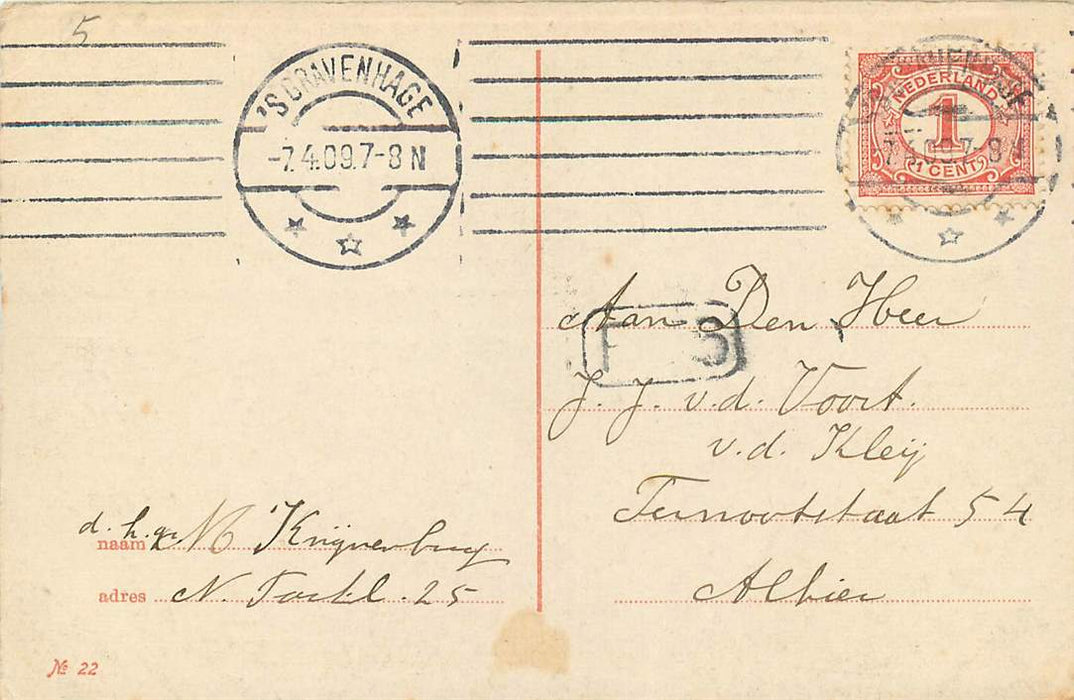 5
'S GRAVENHAGE
-7.4.09.7-8 N
NEDERLAND
1
1 CENT
7.4.09.7-8 N
Aan Den Heer
J. J. v.d. Voort.
v.d. Kleij
Ternootstraat 54
Alhier
d. h. gr. M Knijnenburg
naam
adres N. 25
№ 22